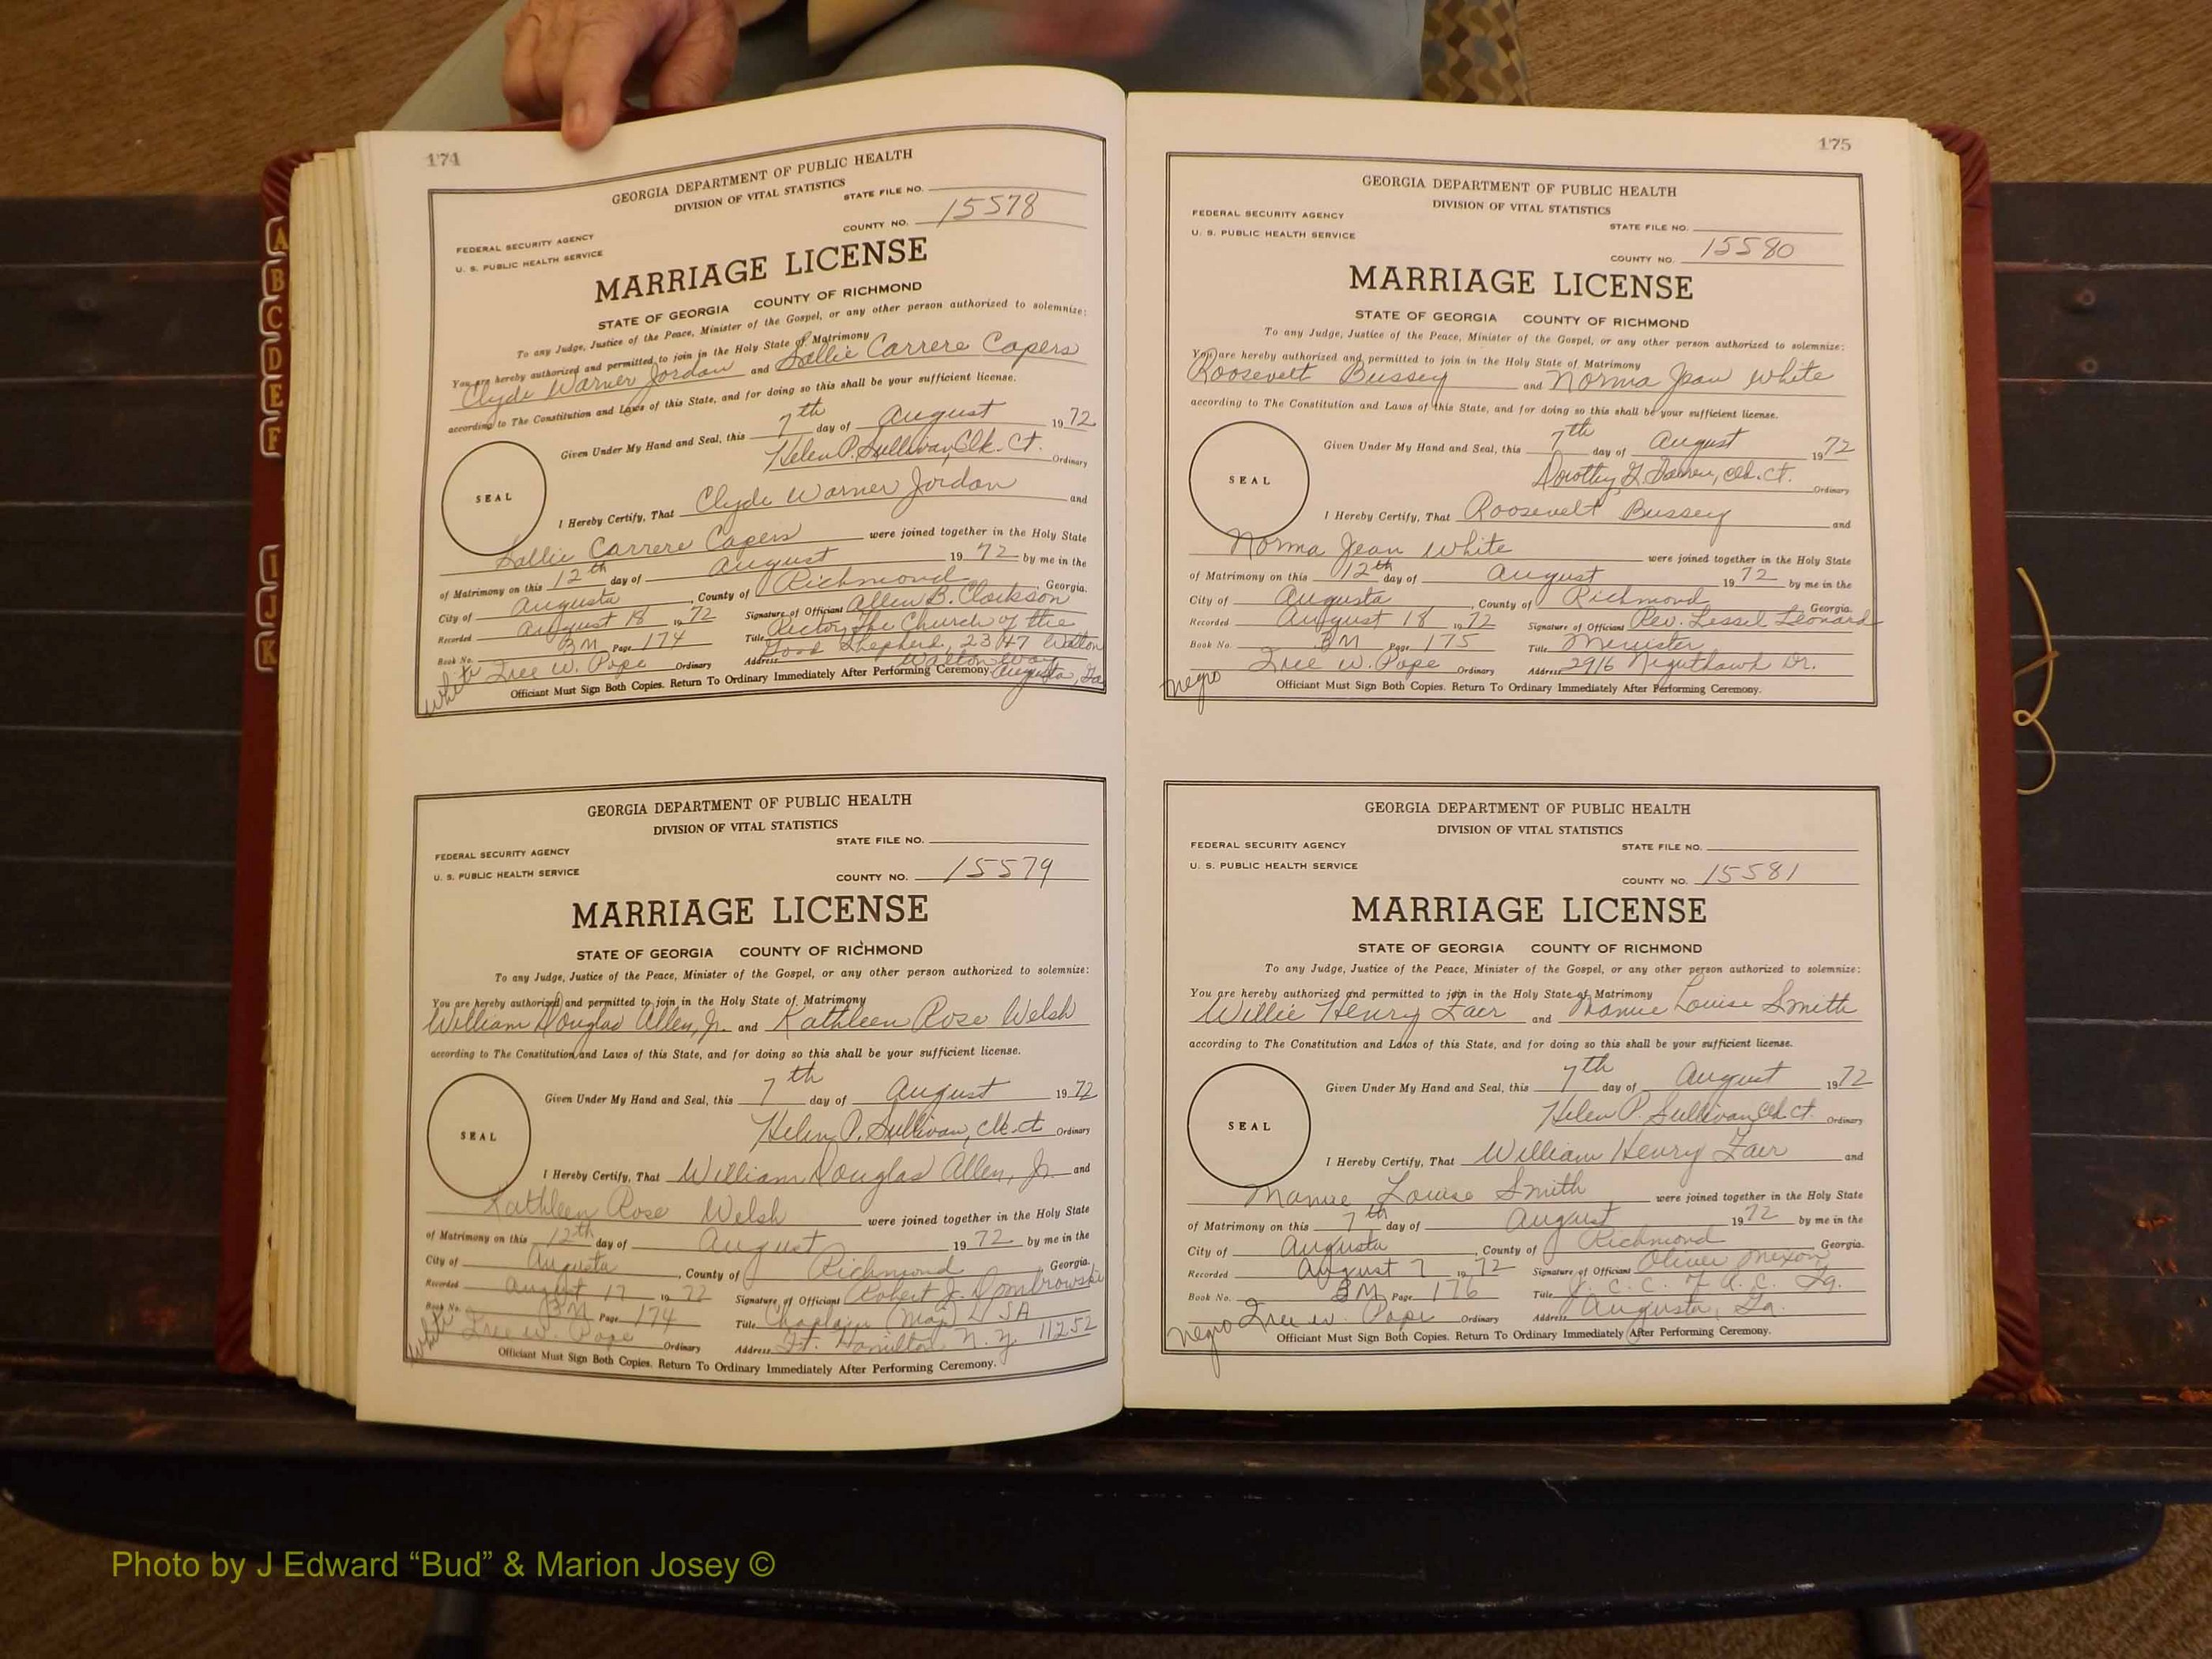 174
GEORGIA DEPARTMENT OF PUBLIC HEALTH
DIVISION OF VITAL STATISTICS
STATE FILE NO.
FEDERAL SECURITY AGENCY
U. S. PUBLIC HEALTH SERVICE
COUNTY NO. 15578
MARRIAGE LICENSE
STATE OF GEORGIA COUNTY OF RICHMOND
To any Judge, Justice of the Peace, Minister of the Gospel, or any other person authorized to solemnize:
You are hereby authorized and permitted to join in the Holy State of Matrimony
Clyde Warner Jordan and Sallie Carrere Capers
according to The Constitution and Laws of this State, and for doing so this shall be your sufficient license.
Given Under My Hand and Seal, this 7th day of August 1972
Helen P. Sullivan, Clk. Ct. Ordinary
SEAL
I Hereby Certify, That Clyde Warner Jordan and
Sallie Carrere Capers were joined together in the Holy State
of Matrimony on this 12th day of August 1972 by me in the
City of Augusta, County of Richmond, Georgia.
Recorded August 18 1972 Signature of Officiant Allen B. Clarkson
Book No. BM Page 174 Title Rector, The Church of the
Tree W. Pope Ordinary Address Good Shepherd, 2347 Walton
Walton Way
Augusta, Ga
white
Officiant Must Sign Both Copies. Return To Ordinary Immediately After Performing Ceremony.
GEORGIA DEPARTMENT OF PUBLIC HEALTH
DIVISION OF VITAL STATISTICS
STATE FILE NO.
FEDERAL SECURITY AGENCY
U. S. PUBLIC HEALTH SERVICE
COUNTY NO. 15579
MARRIAGE LICENSE
STATE OF GEORGIA COUNTY OF RICHMOND
To any Judge, Justice of the Peace, Minister of the Gospel, or any other person authorized to solemnize:
You are hereby authorized and permitted to join in the Holy State of Matrimony
William Douglas Allen, Jr. and Kathleen Rose Welsh
according to The Constitution and Laws of this State, and for doing so this shall be your sufficient license.
Given Under My Hand and Seal, this 7th day of August 1972
Helen P. Sullivan, Clk. ct Ordinary
SEAL
I Hereby Certify, That William Douglas Allen, Jr. and
Kathleen Rose Welsh were joined together in the Holy State
of Matrimony on this 12th day of August 1972 by me in the
City of Augusta, County of Richmond, Georgia.
Recorded August 17 1972 Signature of Officiant Robert J. Dombrowski
Book No. BM Page 174 Title Chaplain (Maj) USA
Tree W. Pope Ordinary Address Ft. Hamilton N. Y. 11252
white
Officiant Must Sign Both Copies. Return To Ordinary Immediately After Performing Ceremony.
175
GEORGIA DEPARTMENT OF PUBLIC HEALTH
DIVISION OF VITAL STATISTICS
FEDERAL SECURITY AGENCY
U. S. PUBLIC HEALTH SERVICE
STATE FILE NO.
COUNTY NO. 15580
MARRIAGE LICENSE
STATE OF GEORGIA COUNTY OF RICHMOND
To any Judge, Justice of the Peace, Minister of the Gospel, or any other person authorized to solemnize:
You are hereby authorized and permitted to join in the Holy State of Matrimony
Roosevelt Bussey and Norma Jean White
according to The Constitution and Laws of this State, and for doing so this shall be your sufficient license.
Given Under My Hand and Seal, this 7th day of August 1972
Dorothy clk. ct. Ordinary
SEAL
I Hereby Certify, That Roosevelt Bussey and
Norma Jean White were joined together in the Holy State
of Matrimony on this 12th day of August 1972 by me in the
City of Augusta, County of Richmond, Georgia.
Recorded August 18 1972 Signature of Officiant Rev. Lessel Leonard
Book No. BM Page 175 Title Minister
Tree W. Pope Ordinary Address 2916 Nighthawk Dr.
negro
Officiant Must Sign Both Copies. Return To Ordinary Immediately After Performing Ceremony.
GEORGIA DEPARTMENT OF PUBLIC HEALTH
DIVISION OF VITAL STATISTICS
FEDERAL SECURITY AGENCY
U. S. PUBLIC HEALTH SERVICE
STATE FILE NO.
COUNTY NO. 15581
MARRIAGE LICENSE
STATE OF GEORGIA COUNTY OF RICHMOND
To any Judge, Justice of the Peace, Minister of the Gospel, or any other person authorized to solemnize:
You are hereby authorized and permitted to join in the Holy State of Matrimony
Willie Henry Fair and Louise Smith
according to The Constitution and Laws of this State, and for doing so this shall be your sufficient license.
Given Under My Hand and Seal, this 7th day of August 1972
Helen P. Sullivan, Clk. ct. Ordinary
SEAL
I Hereby Certify, That William Henry Fair and
Louise Smith were joined together in the Holy State
of Matrimony on this 7th day of August 1972 by me in the
City of Augusta, County of Richmond, Georgia.
Recorded August 7 1972 Signature of Officiant Oliver Mixon
Book No. BM Page 176 Title J. C. C. of R. C. Ga.
Tree W. Pope Ordinary Address Augusta, Ga.
negro
Officiant Must Sign Both Copies. Return To Ordinary Immediately After Performing Ceremony.
A
B
C
D
E
F
I
J
K
Photo by J Edward “Bud” & Marion Josey ©